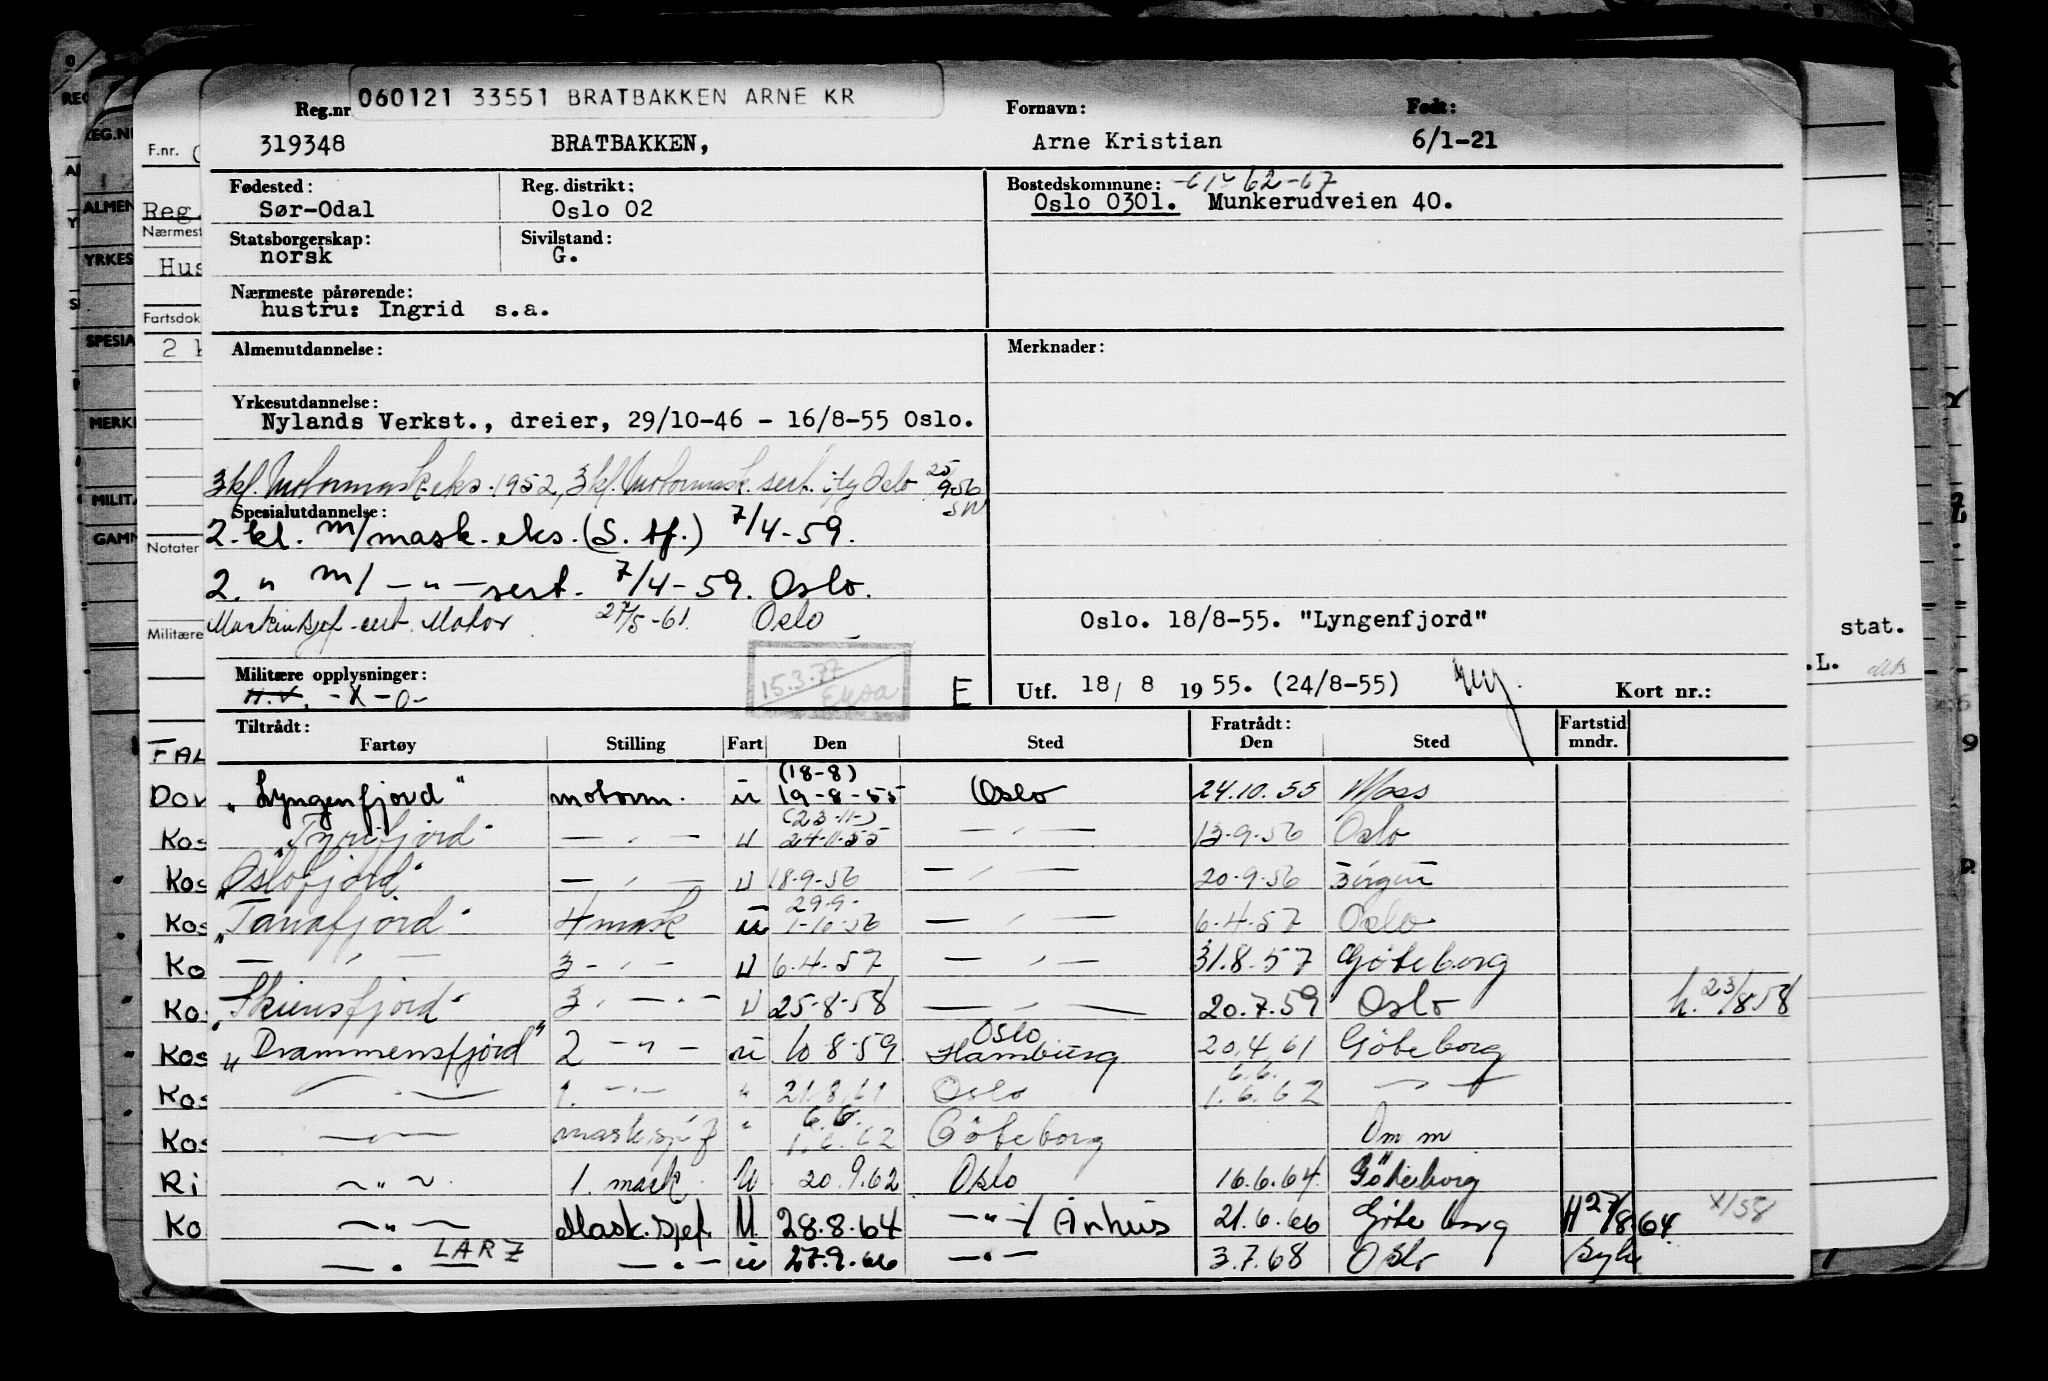 060121 33551 BRATBAKKEN ARNE KR
Reg.nr Fornavn: Født:
319348 BRATBAKKEN, Arne Kristian 6/1-21
Fødested: Reg. distrikt: Bostedskommune: 62-67
Sør-Odal Oslo 02 Oslo 0301. Munkerudveien 40.
Statsborgerskap: Sivilstand:
norsk G.
Nærmeste pårørende:
hustru: Ingrid s.a.
Almenutdannelse: Merknader:
Yrkesutdannelse:
Nylands Verkst., dreier, 29/10-46 - 16/8-55 Oslo.
3 kl. Motormask.eks. 1952, 3 kl. Motormask. sert. Oslo 25/9-56
Spesialutdannelse:
2. kl. m/mask. eks. (S. tf.) 7/4-59.
2. " m/ — " — sert. 7/4-59. Oslo.
Maskinsjef-sert. Motor 5-61. Oslo
Oslo. 18/8-55. "Lyngenfjord"
15.3.77
Militære opplysninger:
H.V. -X-0-
E Utf. 18/8 1955. (24/8-55) Kort nr.:
Tiltrådt: Fratrådt: Fartstid
Fartøy Stilling Fart Den Sted Den Sted mndr.
"Lyngenfjord" motorm. u (18-8) 19-8-55 Oslo 24.10.55 Moss
"Tyrifjord" — " — u (23-11-) 24-11-55 — " — 13-9-56 Oslo
"Oslofjord" — " — u 18-9-56 — " — 20-9-56 Bergen
"Tanafjord" 4 mask u 29-9- 1-10-56 — " — 6-4-57 Oslo
— " — 3 — " — u 6-4-57 31.8.57 Göteborg
"Skiensfjord" 3. — " — u 25-8-58 — " — 20.7.59 Oslo h. 23/8 58
"Drammensfjord" 2 — " — u 10-8-59 Oslo Hamburg 20.4.61 Göteborg
— " — 1. — " — " 21.8.61 Oslo 6.6. 1.6.62 — " —
— " — masksjef " 6.6. 1.6.62 Göteborg Om m
— " — 1. mask. U 20.9.62 Oslo 16.6.64. Göteborg
— " — Mask.sjef. U 28.8.64 — " — / Århus 21.6.66 Göteborg H 27/8 64. X/58
— " — LARZ — " — u 27.9.66 — " — 3.7.68 Oslo Syk
F.nr.
Reg
Nærmest
Hus
Fartsdok
2 k
Notater
Militære
FAL
Dov
Kos
Kos
Kos
Ko
Kos
Kos
Kos
Kos
Ri
Ko
REG.NR
ALMEN
YRKES
SPESIA
MERK
MILITÆ
GAMM
stat.
.L.